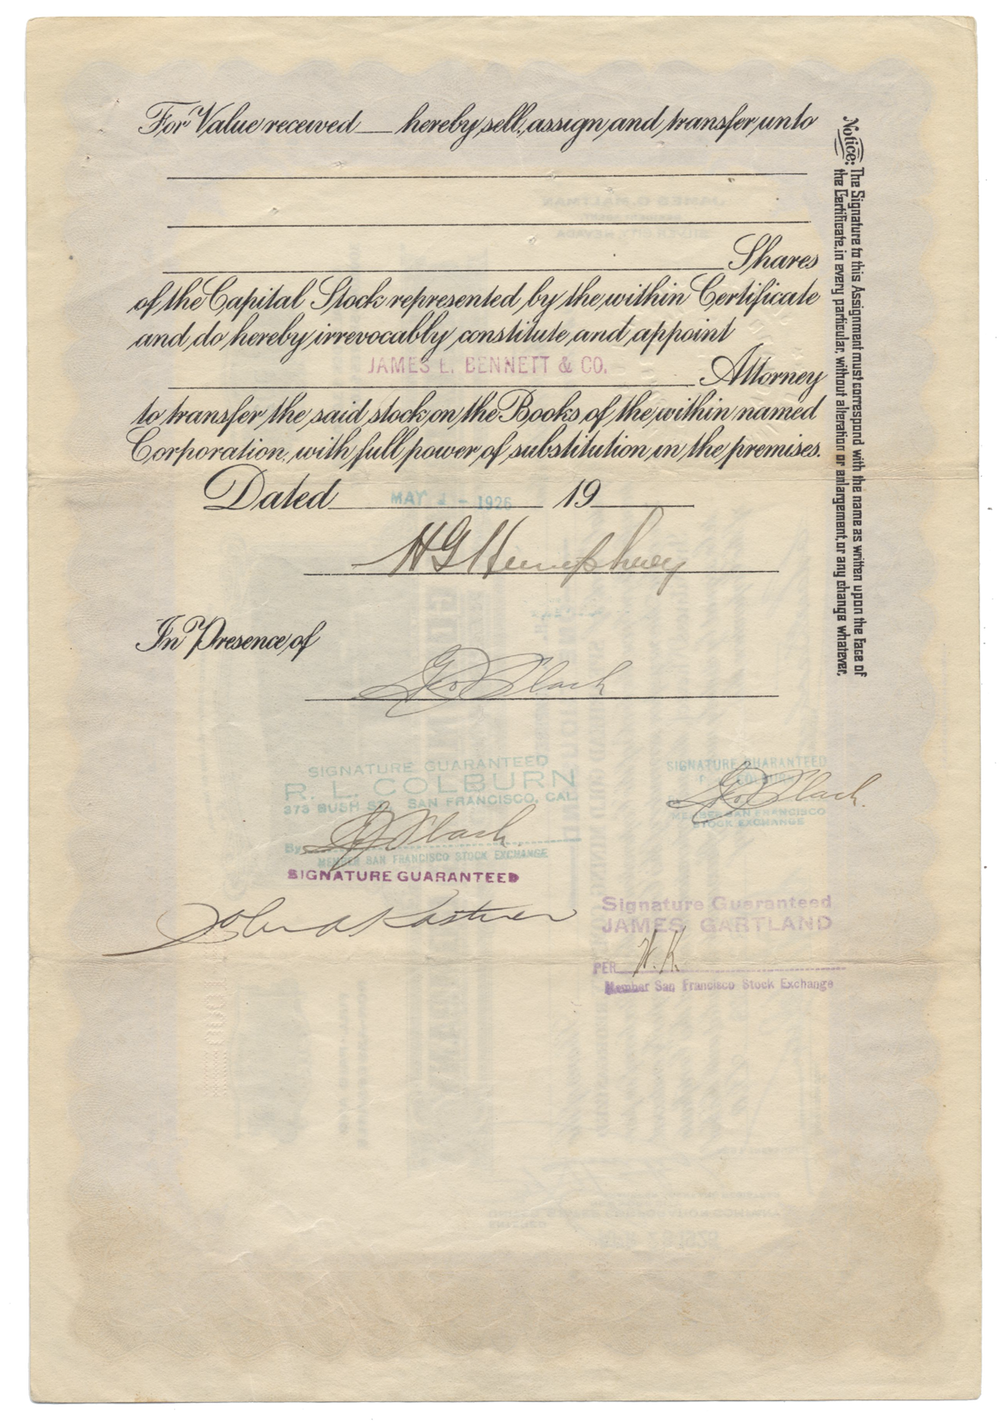 For Value received hereby sell, assign and transfer unto
Shares
of the Capital Stock represented by the within Certificate
and do hereby irrevocably constitute and appoint
JAMES E. BENNETT & CO.
Attorney
to transfer the said stock on the Books of the within named
Corporation, with full power of substitution in the premises.
Dated MAY - 1926 19
H G Humphrey
In Presence of
Geo Slack
SIGNATURE GUARANTEED
R. L. COLBURN
373 BUSH ST. SAN FRANCISCO, CAL.
By Slack
MEMBER SAN FRANCISCO STOCK EXCHANGE
SIGNATURE GUARANTEED
SIGNATURE GUARANTEED
Geo Slack.
MEMBER SAN FRANCISCO
STOCK EXCHANGE
John A
Signature Guaranteed
JAMES GARTLAND
PER W. K.
Member San Francisco Stock Exchange
Notice: The Signature to this Assignment must correspond with the name as written upon the face of
the Certificate, in every particular, without alteration or enlargement, or any change whatever.